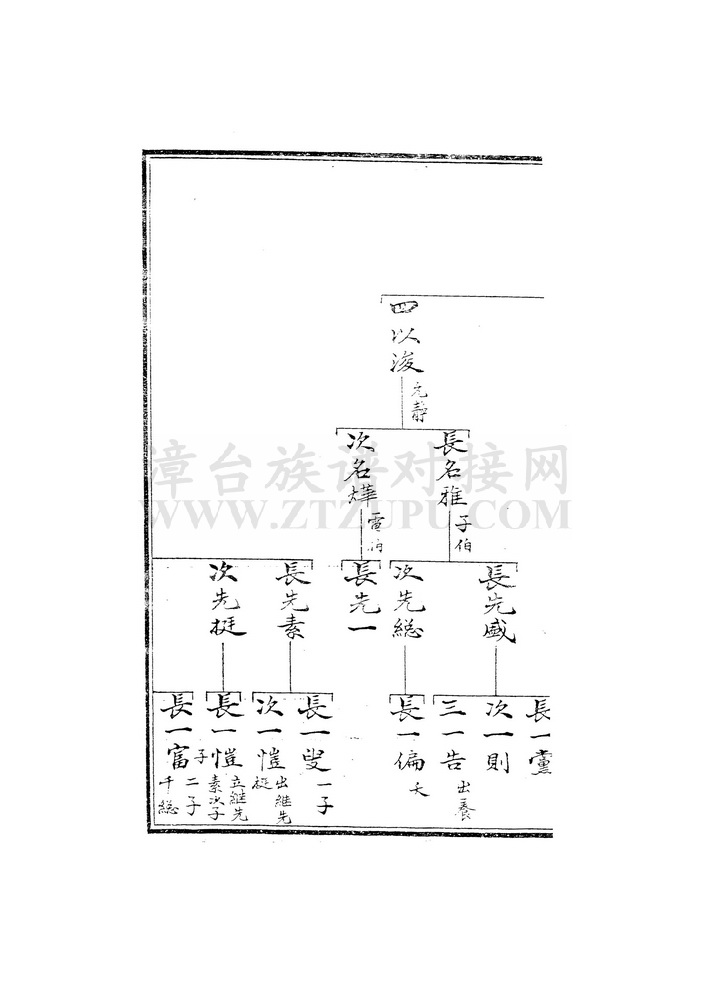 四以浚
元静
長名雅
子伯
次名燁
電
長先盛
次先総
長先一
長先素
次先挺
長一黨
次一則
三一告
出養
長一偏
夭
長一叟
一子
次一愷
出继先
挺
長一愷
立继先
素次子
子
長一富
二子
千総
漳台族谱对接网
WWW.ZTZUPU.COM